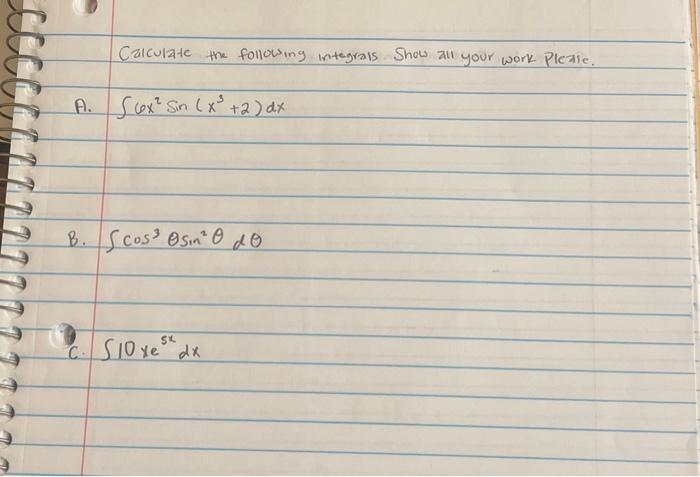 Calculate the following integrals Show all your work Please.
A. ∫6x² sin (x³ +2) dx
B. ∫cos³ θ sin² θ dθ
C. ∫10xe⁵ˣ dx